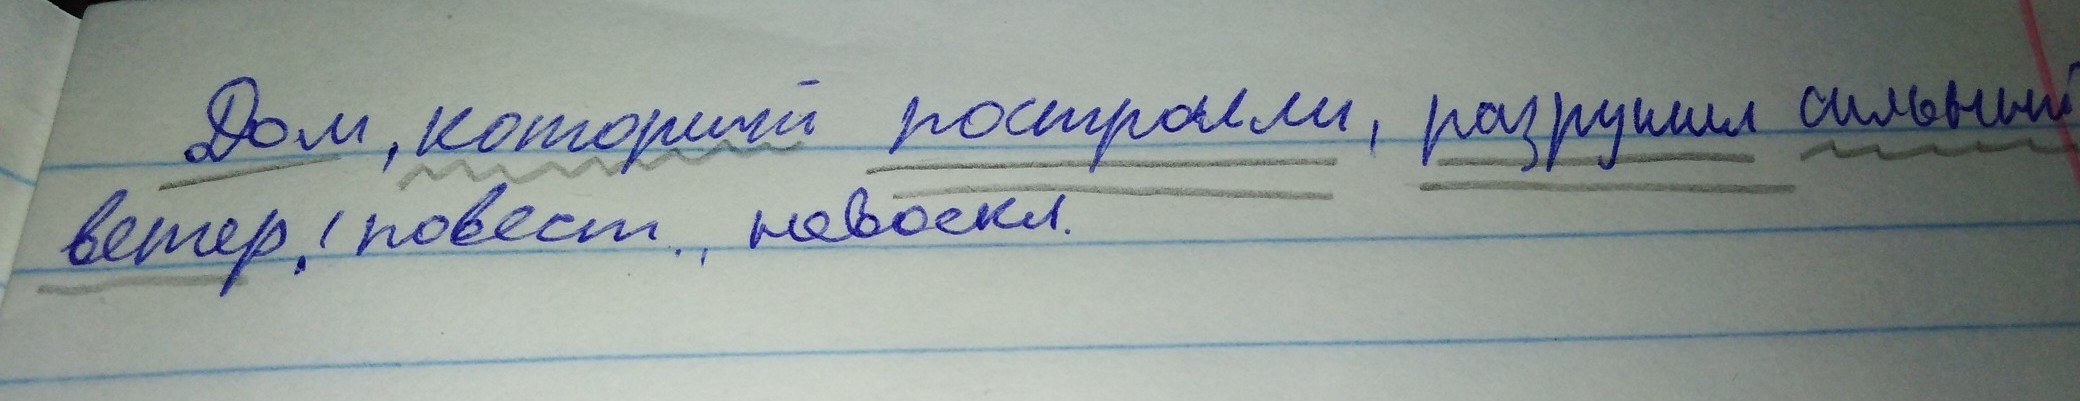 Дом, который построили, разрушил сильный
ветер. (повест., невоскл.